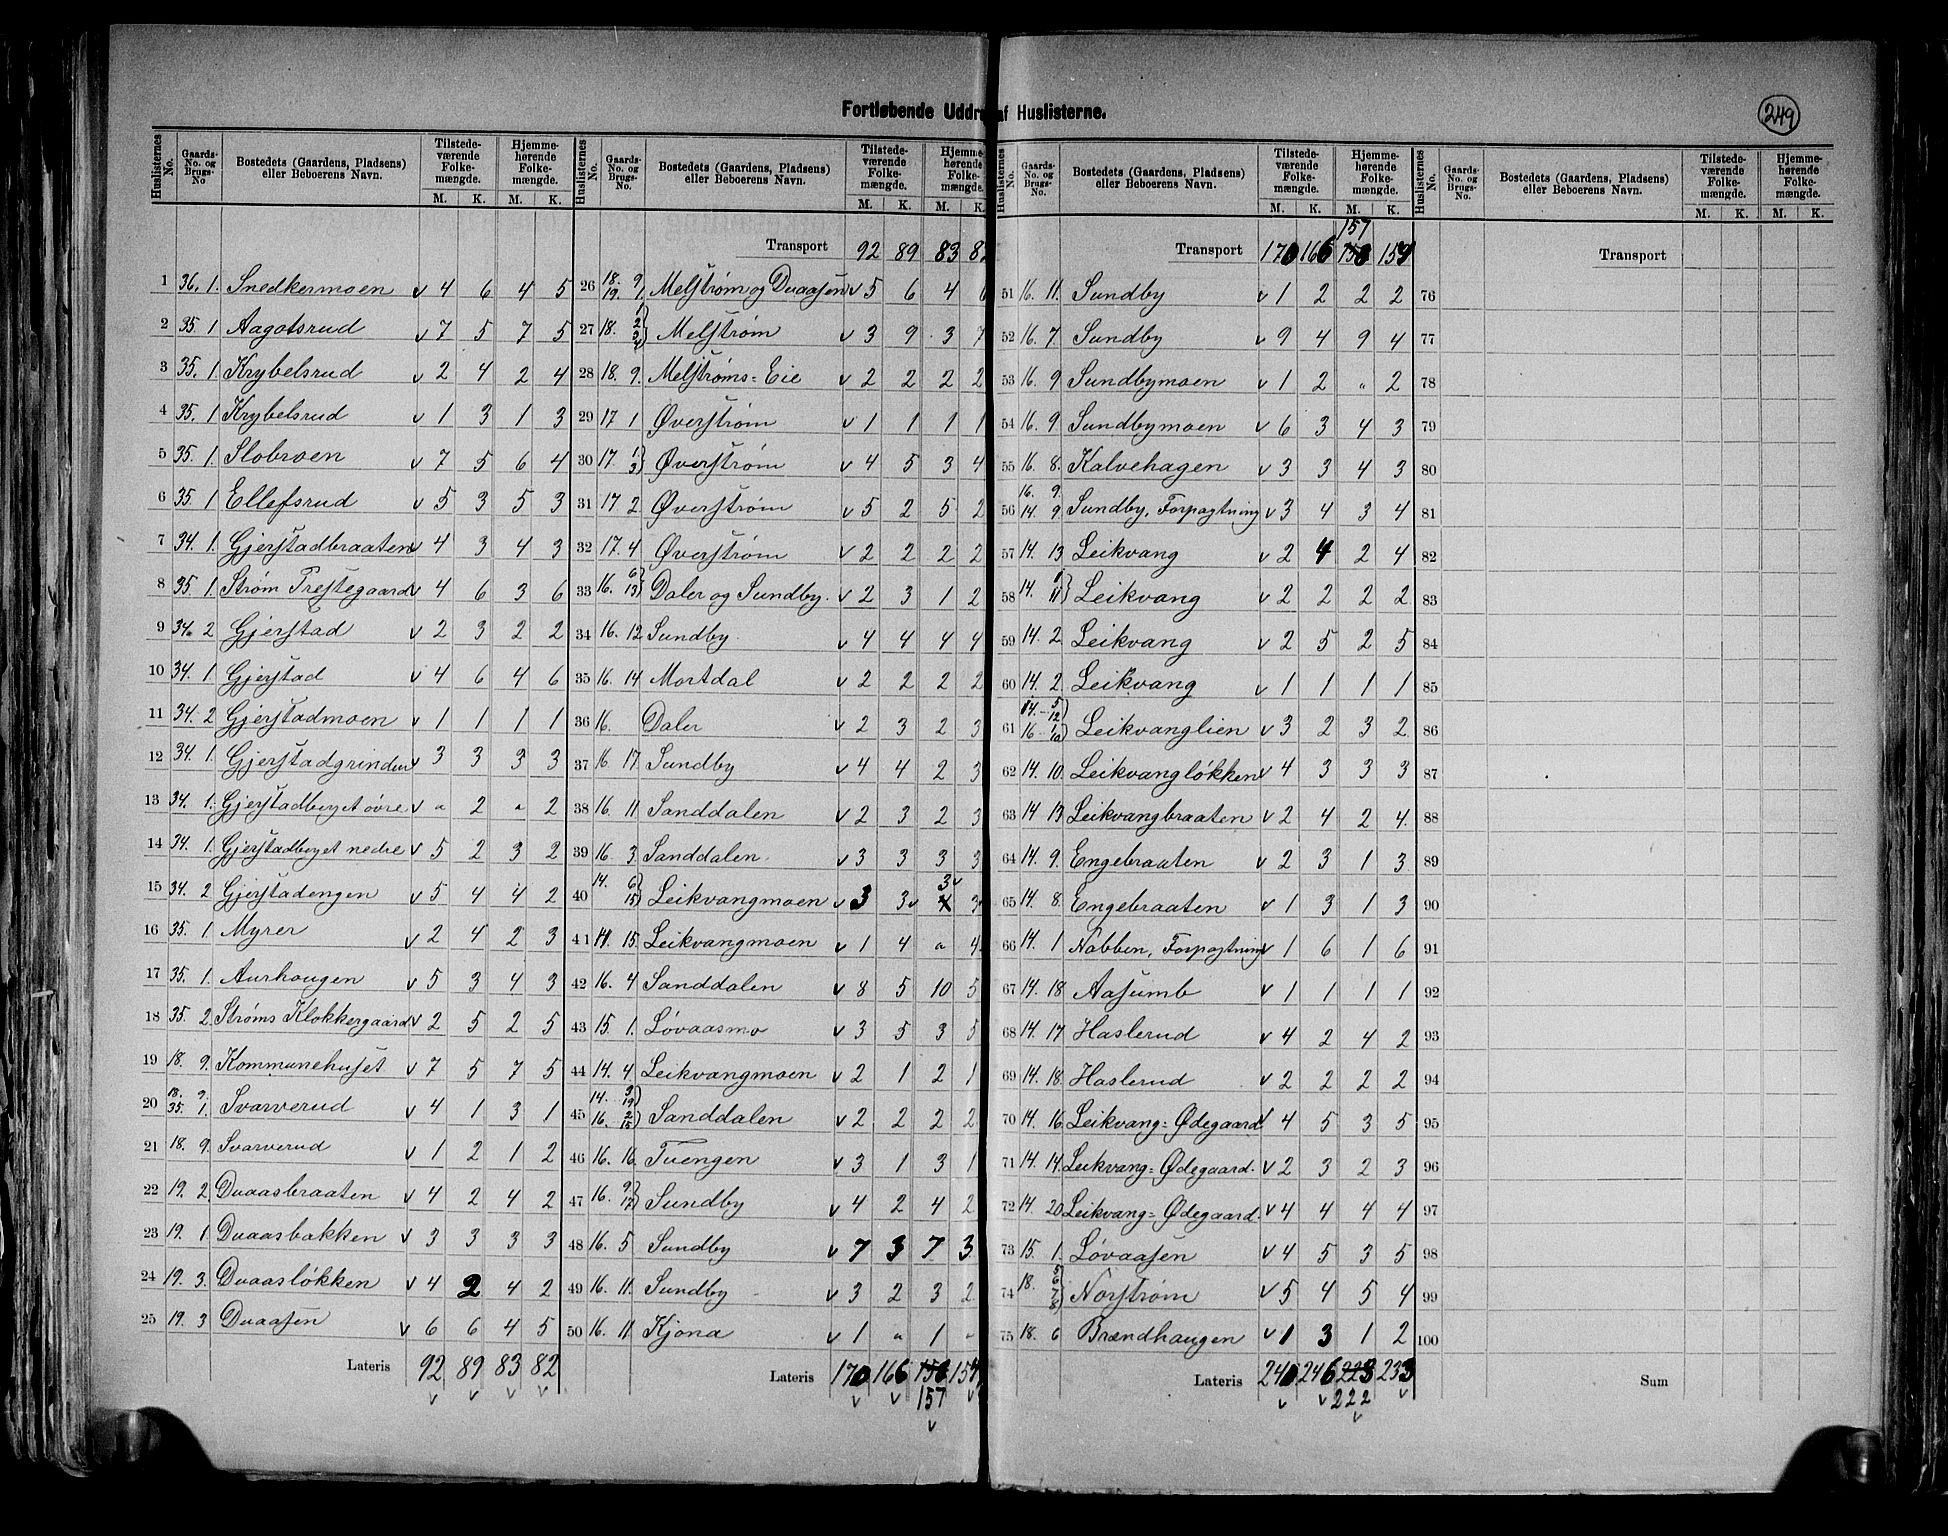 Fortløbende Uddr af Huslisterne.
249
Huslisternes No. Gaards-No. og Brugs-No Bostedets (Gaardens, Pladsens) eller Beboerens Navn. Tilstedeværende Folkemængde. Hjemmehørende Folkemængde.
M. K. M. K.
1 36. 1. Snedkermoen v 4 6 4 5
2 35 1 Aagotsrud v 7 5 7 5
3 35. 1 Krybelsrud v 2 4 2 4
4 35. 1 Krybelsrud v 1 3 1 3
5 35. 1. Slobroen v 7 5 6 4
6 35. 1 Ellefsrud v 5 3 5 3
7 34. 1. Gjerstadbraaten v 4 3 4 3
8 35. 1. Strøm Prestegaard v 4 6 3 6
9 34. 2 Gjerstad v 2 3 2 2
10 34. 1 Gjerstad v 4 6 4 6
11 34. 2 Gjerstadmoen v 1 1 1 1
12 34. 1. Gjerstadgrinden v 3 3 3 3
13 34. 1. Gjerstadberget øvre v " 2 " 2
14 34. 1. Gjerstadberget nedre v 5 2 3 2
15 34. 2 Gjerstadengen v 5 4 4 2
16 35. 1 Myrer v 2 4 2 3
17 35. 1. Aurhougen v 5 3 4 3
18 35. 2. Strøms Klokkergaard v 2 5 2 5
19 18. 9. Kommunehuset v 7 5 7 5
20 18. 9. 35. 1. Svarverud v 4 1 3 1
21 18. 9 Svarverud v 1 2 1 2
22 19. 2. Duaasbraaten v 4 2 4 2
23 19. 1 Duaasbakken v 3 3 3 3
24 19. 3. Duaasløkken v 4 2 4 2
25 19. 3 Duaasen v 6 6 4 5
Lateris 92 89 83 82
Huslisternes No. Gaards-No. og Brugs-No. Bostedets (Gaardens, Pladsens) eller Beboerens Navn. Tilstedeværende Folkemængde. Hjemmehørende Folkemængde.
M. K. M. K.
Transport 92 89 83 82
26 18. 9 19. 1 Melstrøm og Duaasen v 5 6 4 6
27 18. 1 2 3 4 Melstrøm v 3 9 3 7
28 18. 9. Melstrøms=Eie v 2 2 2 2
29 17 1 Øverstrøm v 1 1 1 1
30 17. 1 3 Øverstrøm v 4 5 3 4
31 17 2 Øverstrøm v 5 2 5 2
32 17. 4 Øverstrøm v 2 2 2 2
33 16. 6 13 Daler og Sundby. v 2 3 1 2
34 16. 12 Sundby. v 4 4 4 4
35 16. 14 Mortdal v 2 2 2 2
36 16. Daler v 2 3 2 3
37 16 17. Sundby v 4 4 2 3
38 16. 11 Sanddalen v 2 3 2 3
39 16. 3 Sanddalen. v 3 3 3 3
40 14. 6 15 Leikvangmoen v 3 3 v 3 v 3
41 14. 15. Leikvangmoen v 1 4 " 4
42 16. 4 Sanddalen v 8 5 10 5
43 15. 1. Løvaasmo v 3 5 3 5
44 14. 4 Leikvangmoen v 2 1 2 1
45 14. 3 19 16. 2 15 Sanddalen v 2 2 2 2
46 16. 16 Tuengen v 3 1 3 1
47 16. 9 17 Sundby v 4 2 4 2
48 16. 5 Sundby v 7 3 7 3
49 16. 11. Sundby v 3 2 3 2
50 16. 11 Kjona v 1 " 1 "
Lateris 170 166 158 154
157
Huslisternes No. Gaards-No. og Brugs-No. Bostedets (Gaardens, Pladsens) eller Beboerens Navn. Tilstedeværende Folkemængde. Hjemmehørende Folkemængde.
M. K. M. K.
157
Transport 170 166 158 154
51 16. 11. Sundby v 1 2 2 2
52 16. 7 Sundby v 9 4 9 4
53 16. 9 Sundbymoen v 1 2 " 2
54 16. 9 Sundbymoen v 6 3 4 3
55 16. 8. Kalvehagen v 3 3 4 3
56 16. 9. 14. 9 Sundby, Forpagtning v 3 4 3 4
57 14. 13 Leikvang v 2 4 2 4
58 14. 11 Leikvang v 2 2 2 2
59 14. 2 Leikvang v 2 5 2 5
60 14. 2. Leikvang v 1 1 1 1
61 14. 5 12 16 1 10 Leikvanglien v 3 2 3 2
62 14. 10. Leikvangløkken v 4 3 3 3
63 14 13 Leikvangbraaten v 2 4 2 4.
64 14. 9. Engebraaten v 2 3 1 3
65 14. 8. Engebraaten v 1 3 1 3
66 14. 1 Nabben, Forpagtning v 1 6 1 6
67 14. 18 Aasumb v 1 1 1 1
68 14. 17 Haslerud v 4 2 4 2
69 14. 18. Haslerud v 2 2 2 2
70 14. 16 Leikvang=Ødegaard v 4 5 3 5
71 14. 14. Leikvang=Ødegaard. v 2 3 2 3
72 14. 20 Leikvang=Ødegaard. v 4 4 4 4
73 15. 1. Løvaasen v 4 5 3 5
74 18. 5 6 7 8 Norstrøm v 5 4 5 4
75 18. 6 Brændhaugen v 1 3 1 2
Lateris 240 246 223 233
222
Huslisternes No. Gaards-No. og Brugs-No. Bostedets (Gaardens, Pladsens) eller Beboerens Navn. Tilstedeværende Folkemængde. Hjemmehørende Folkemængde.
M. K. M. K.
Transport
76
77
78
79
80
81
82
83
84
85
86
87
88
89
90
91
92
93
94
95
96
97
98
99
100
Sum